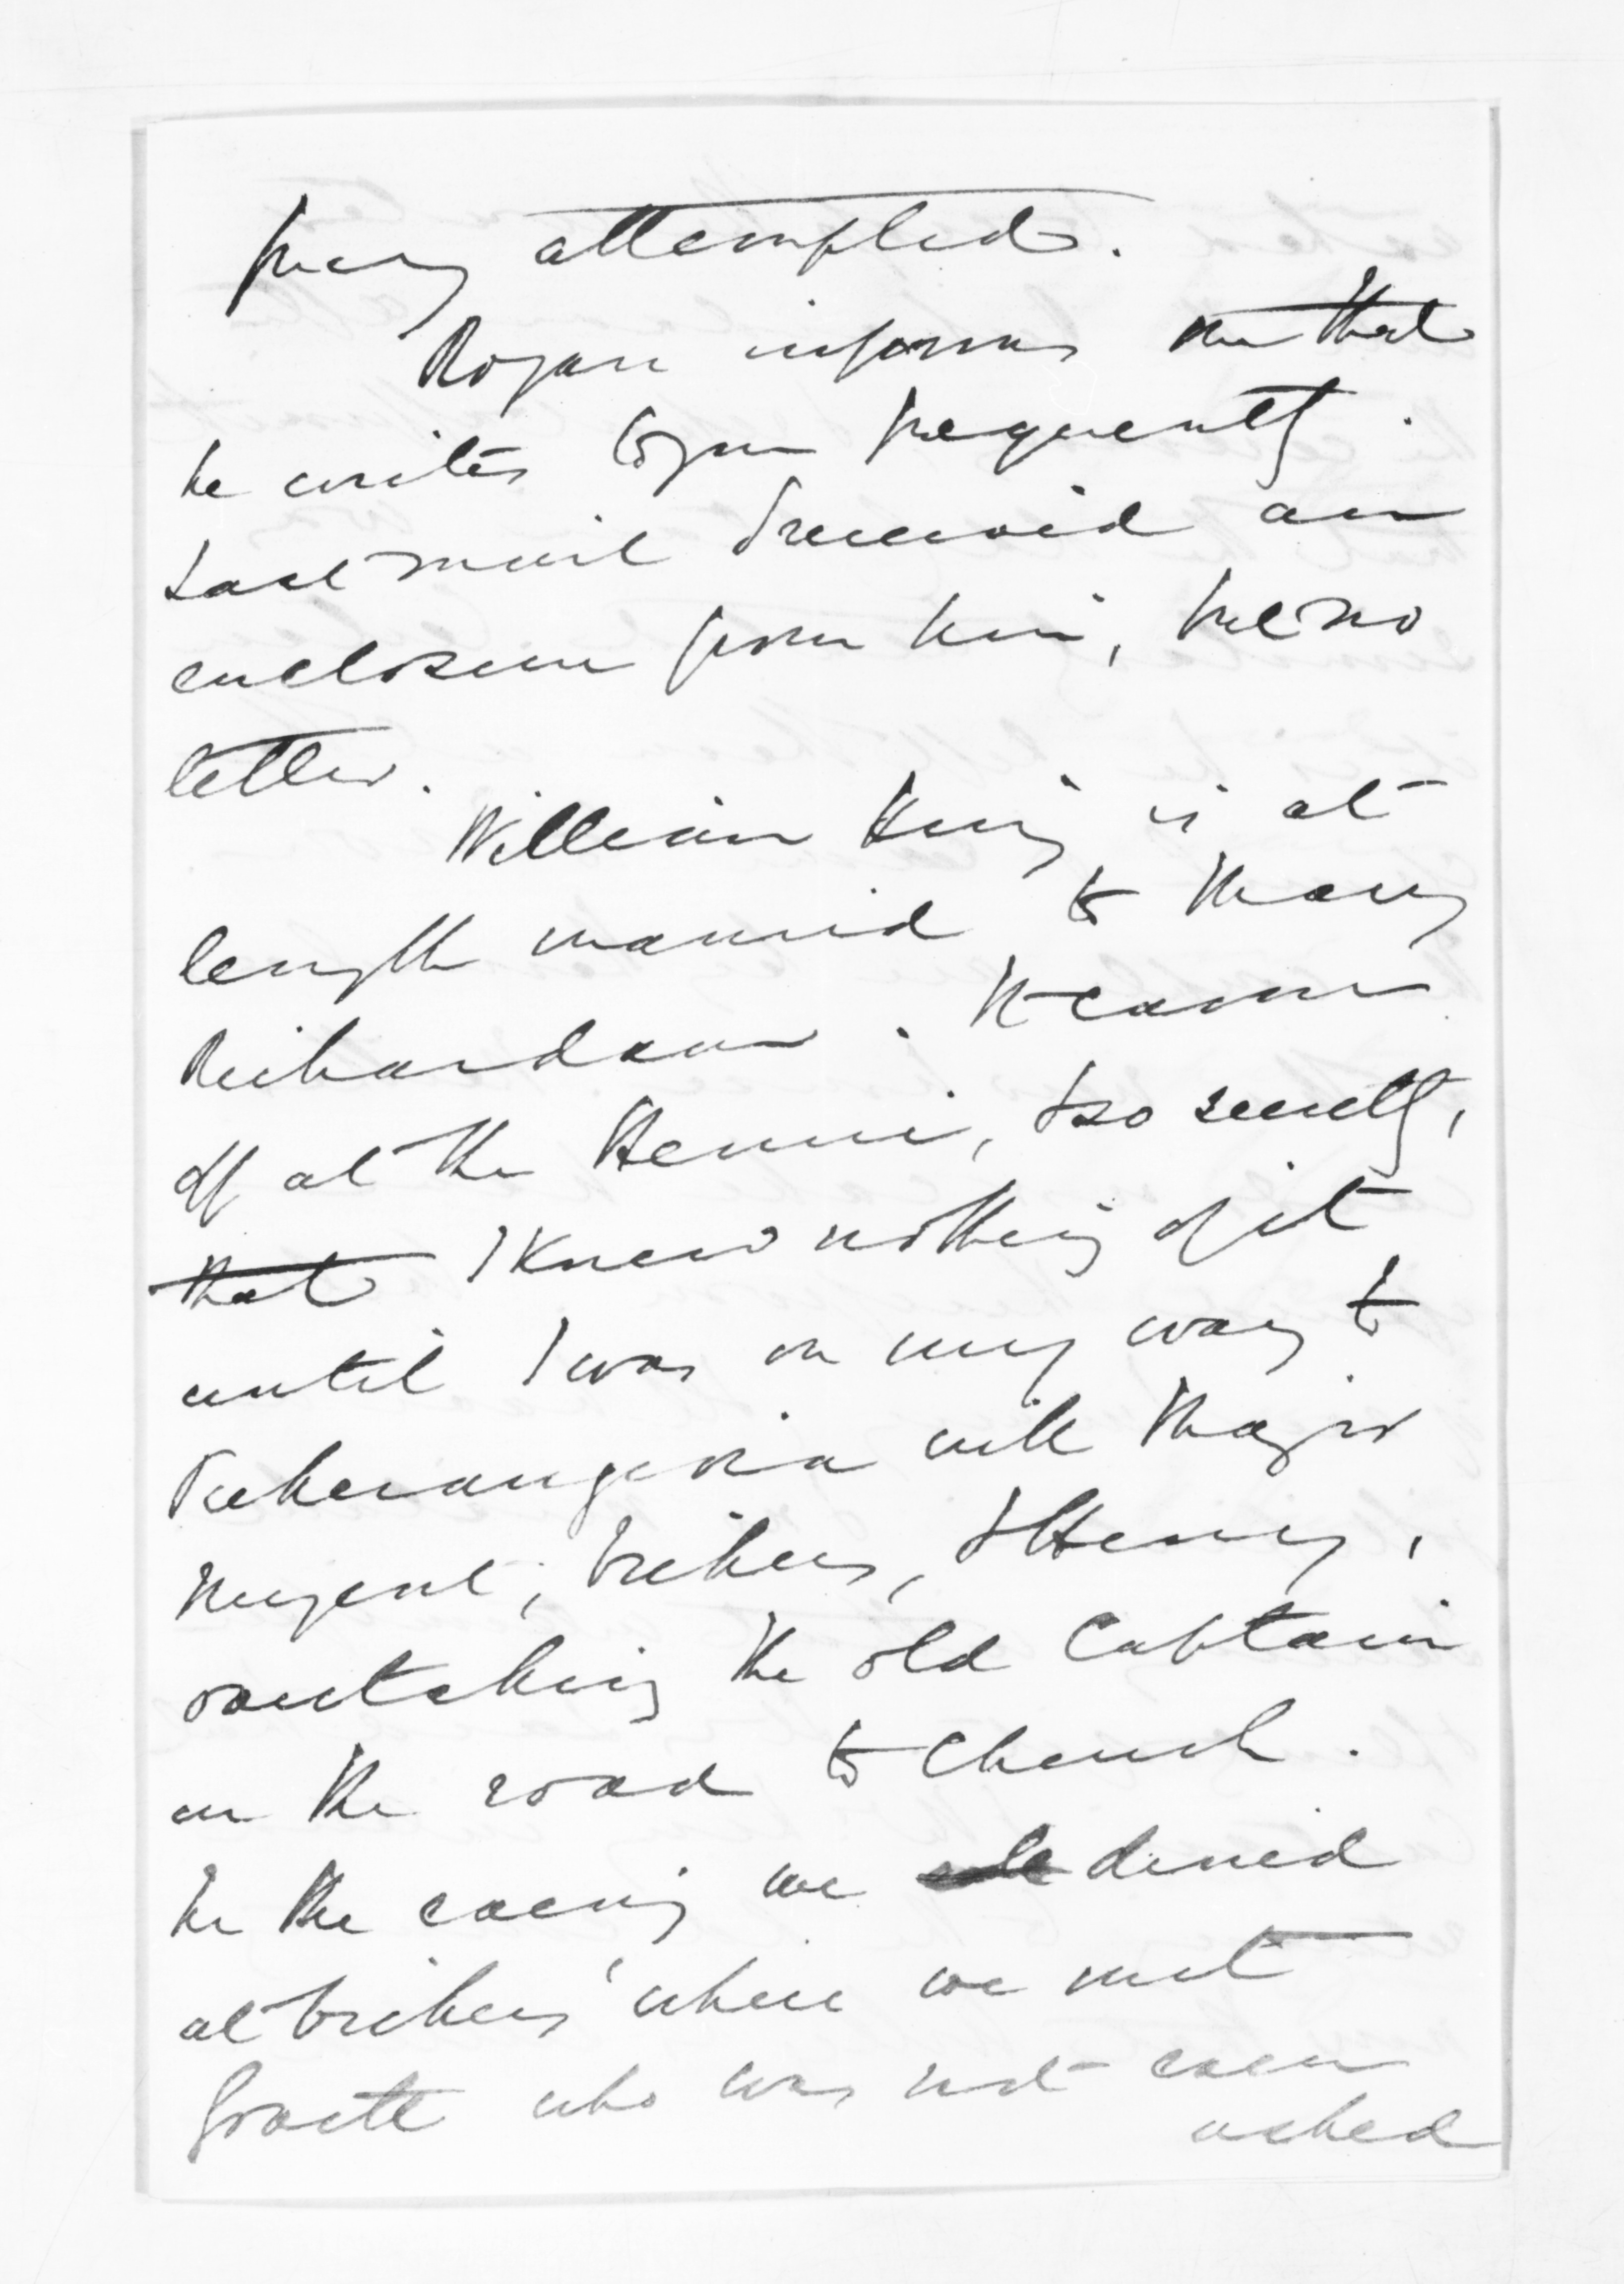 attempted.
Rogan informs me that
he writes to you frequently.
Last mail I received an
enclosure from him, but no
letter.
William King is at
length married to Mary
Richardson. It came
off at the Henui, & so secretly,
that I knew nothing of it
until I was on my way to
with Major
Nugent, &
the old Captain
on the road to Church.
In the evening we dined
at where we met
who was not even
asked